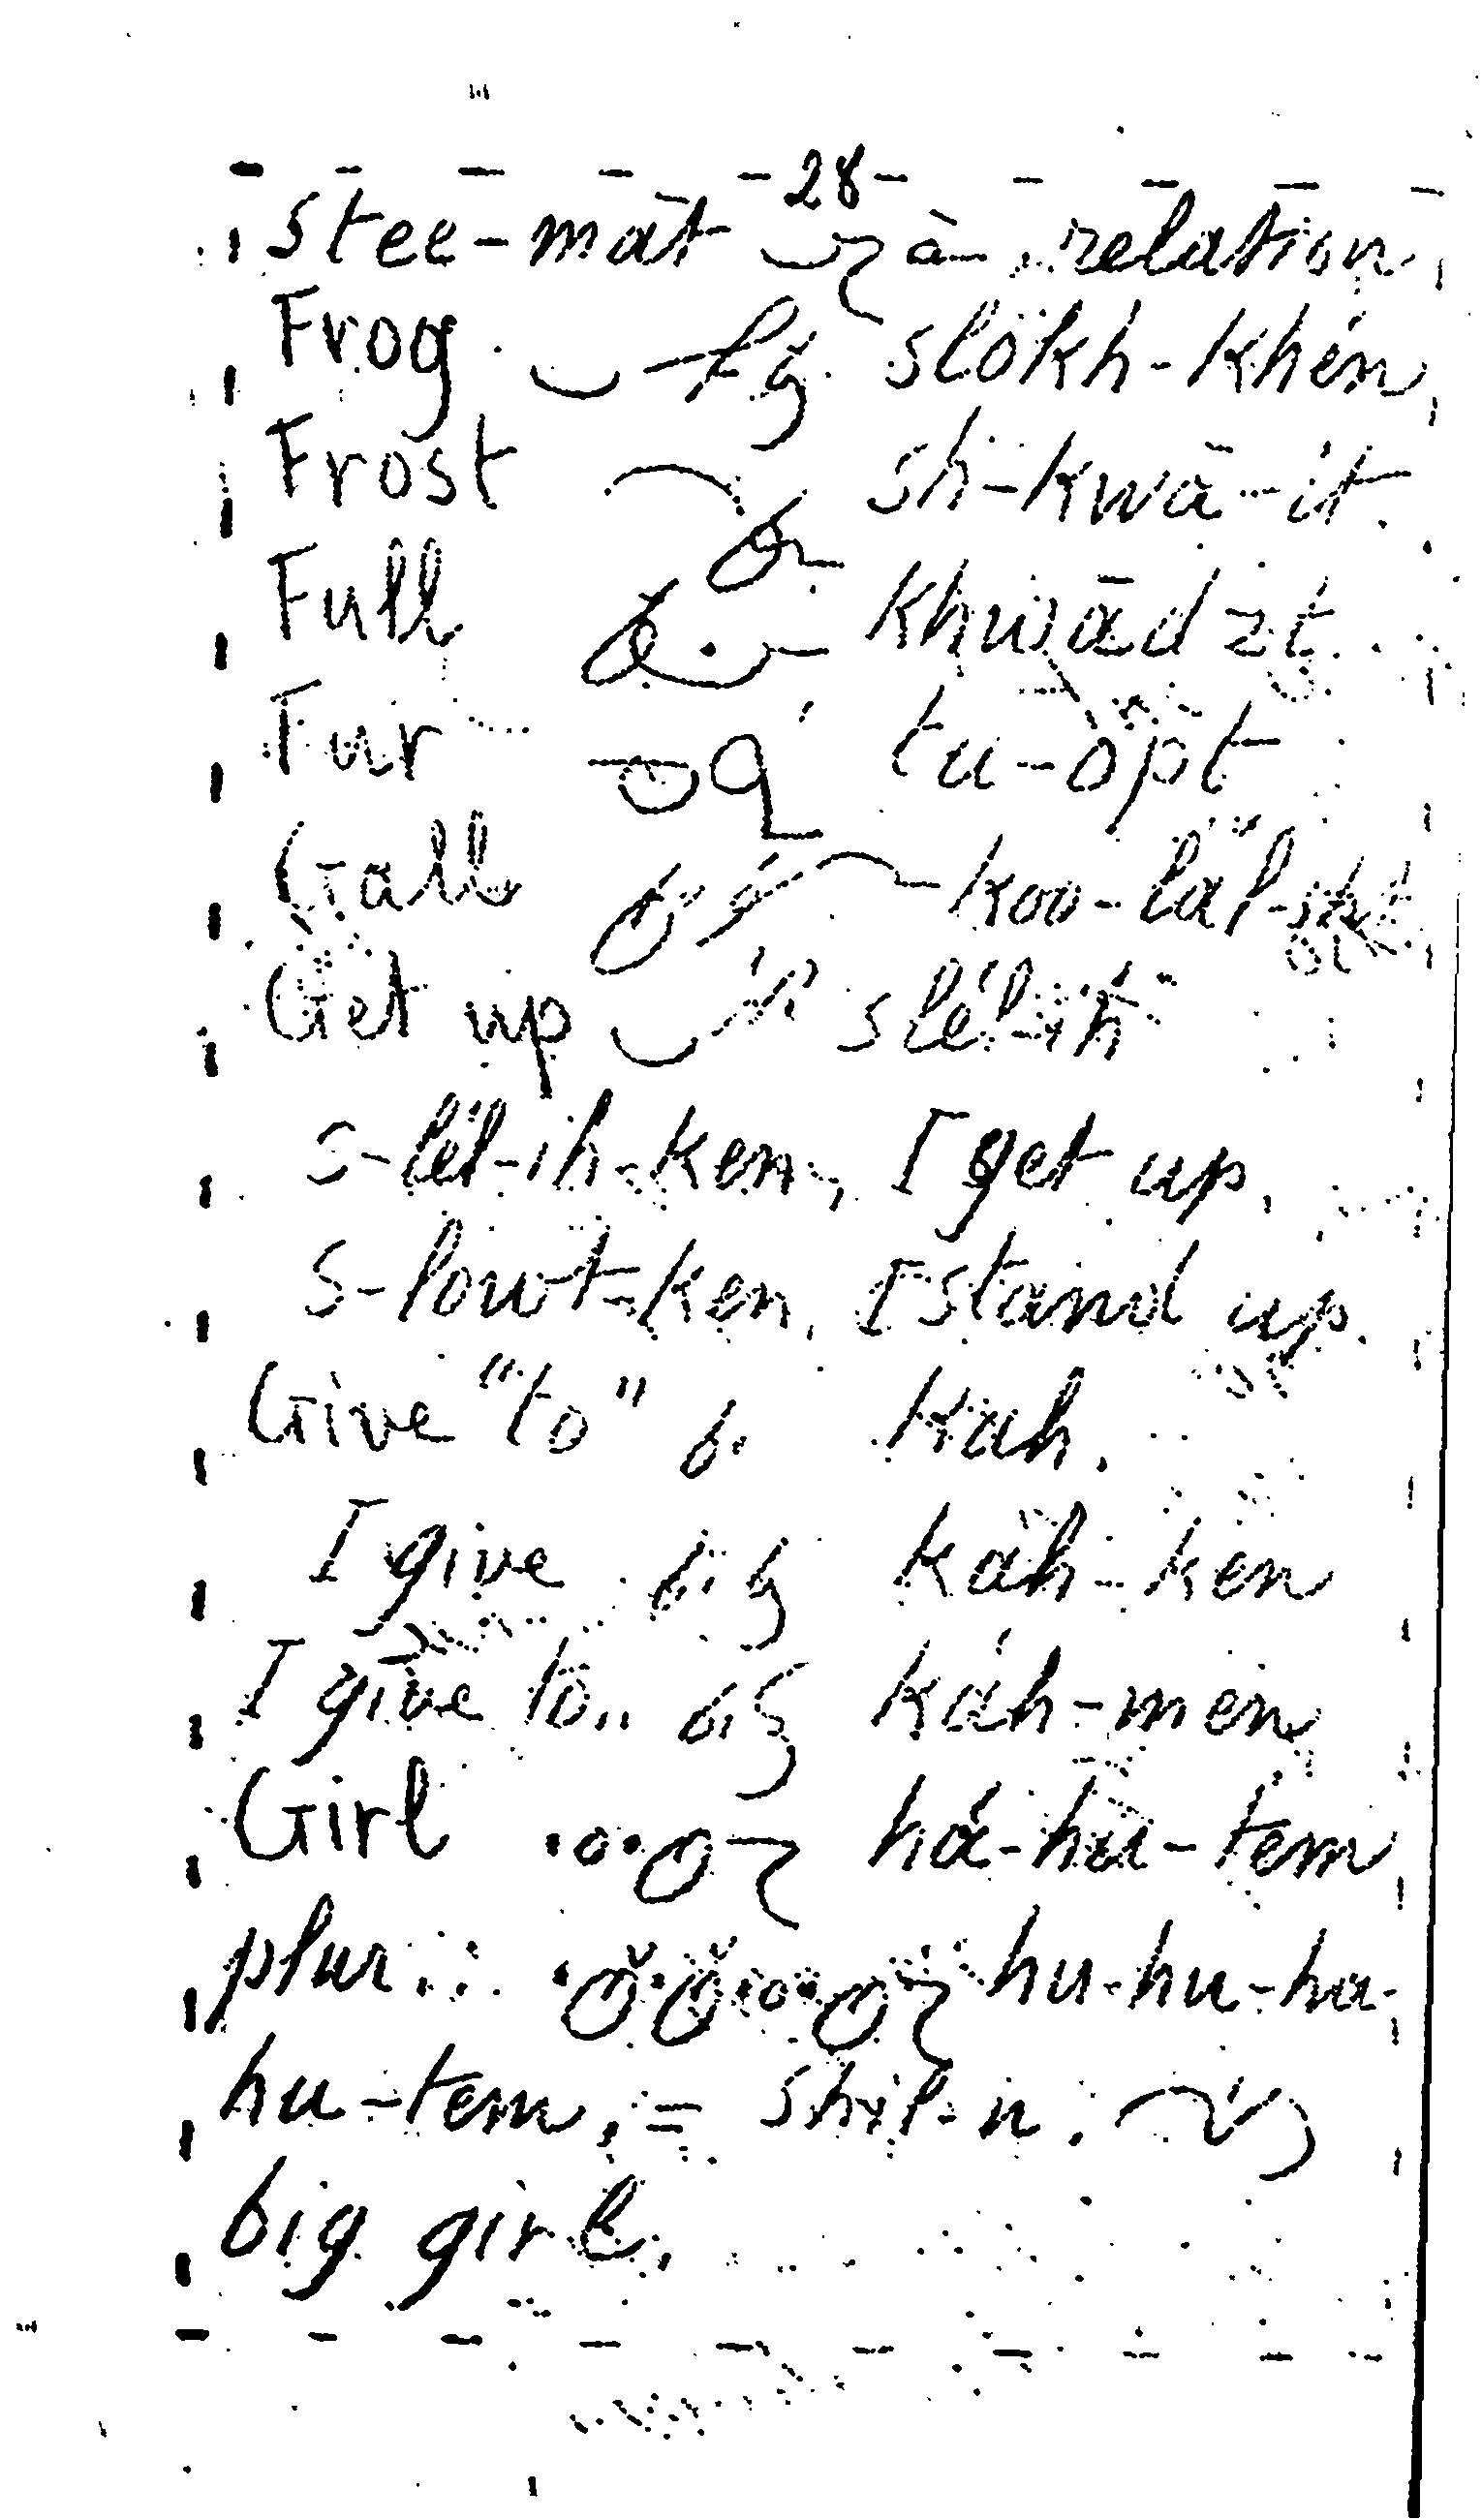 28
stee-māt a relation,
Frog slökh-khén,
Frost sh-kwā-it.
Full khwādzt.
Fur tu-öpt
Gall koo-läl-
Get up slél-ih
s-lél-ih-ken, I get up,
s-lowt-ken, I stand up.
Give "to" kah.
I give käh-ken
I give to,, káh-men
Girl há-hu-tem
plur. hu-hu-ha-
hu-tem, = shil-n.
big girl.